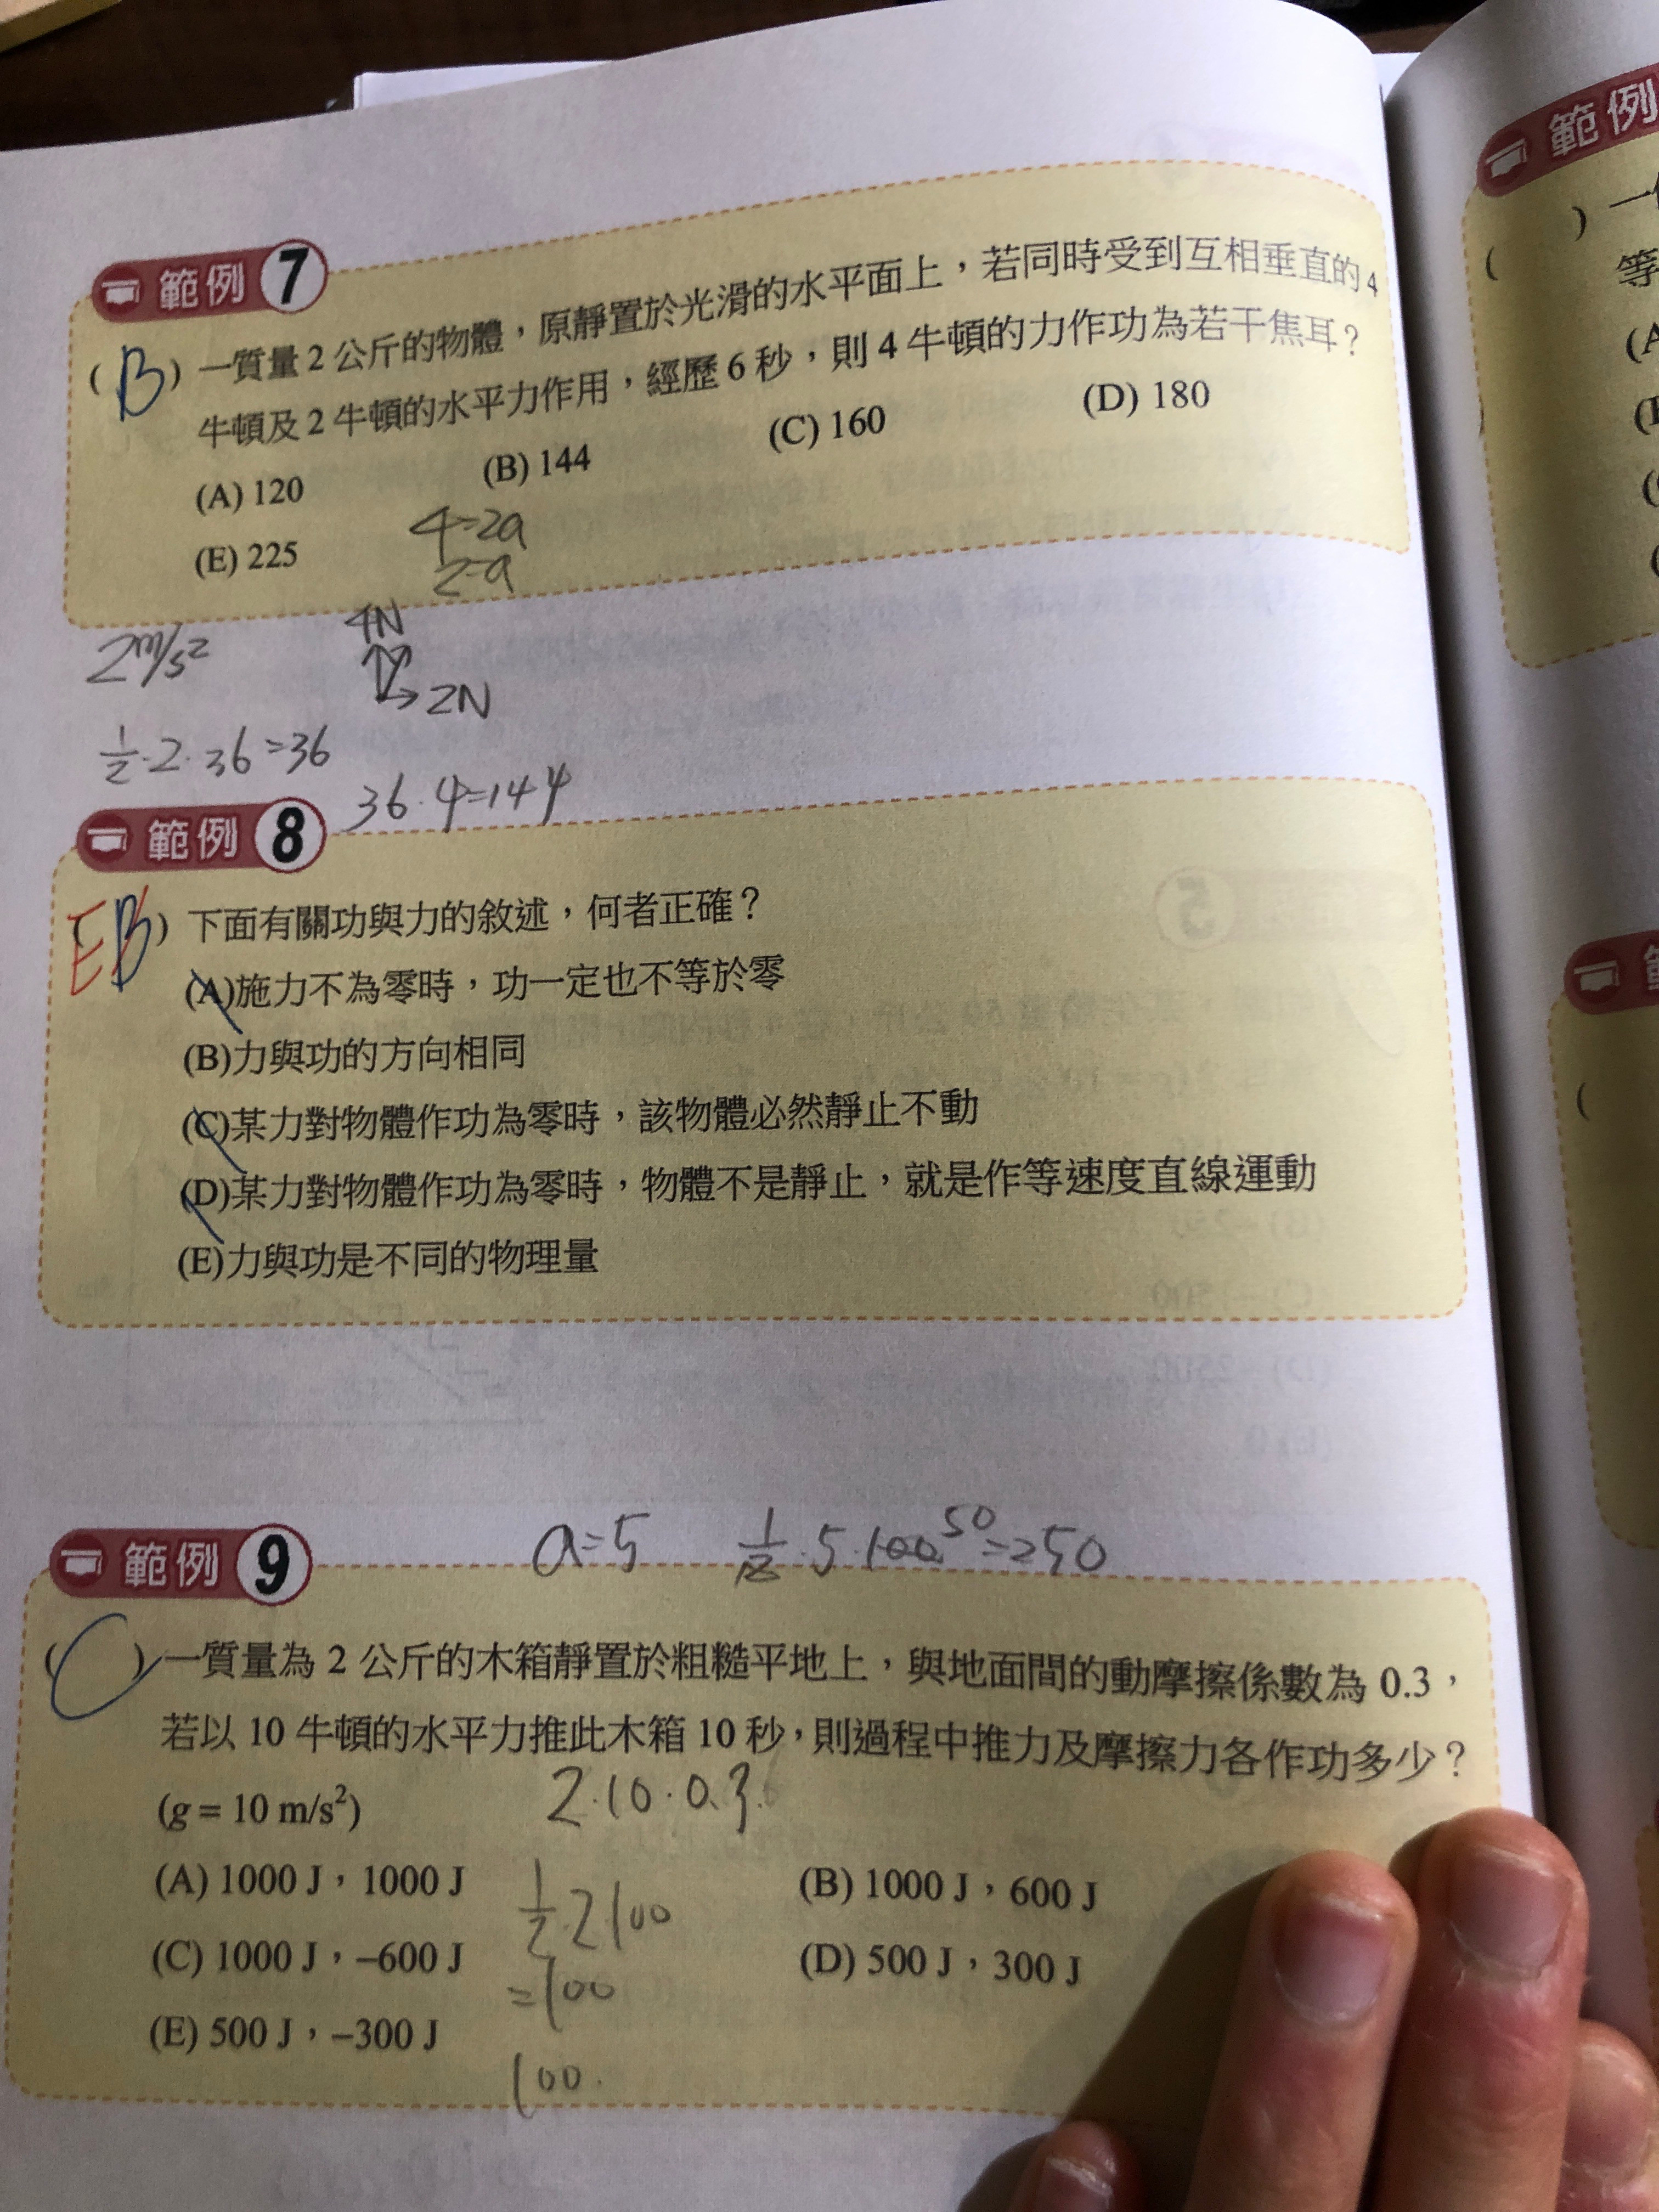 範例 7
(B) 一質量 2 公斤的物體，原靜置於光滑的水平面上，若同時受到互相垂直的 4
牛頓及 2 牛頓的水平力作用，經歷 6 秒，則 4 牛頓的力作功為若干焦耳？
(A) 120 (B) 144 (C) 160 (D) 180
(E) 225
4=2a
2=a
2m/s²
4N
2N
1/2·2·36=36
36·4=144
範例 8
E B) 下面有關功與力的敘述，何者正確？
(A)施力不為零時，功一定也不等於零
(B)力與功的方向相同
(C)某力對物體作功為零時，該物體必然靜止不動
(D)某力對物體作功為零時，物體不是靜止，就是作等速度直線運動
(E)力與功是不同的物理量
a=5 1/2·5·100 50=250
範例 9
(C) 一質量為 2 公斤的木箱靜置於粗糙平地上，與地面間的動摩擦係數為 0.3，
若以 10 牛頓的水平力推此木箱 10 秒，則過程中推力及摩擦力各作功多少？
(g = 10 m/s²)
2·10·0.3
(A) 1000 J，1000 J (B) 1000 J，600 J
(C) 1000 J，–600 J (D) 500 J，300 J
(E) 500 J，–300 J
1/2·2·100
=100
100.
範例
範例